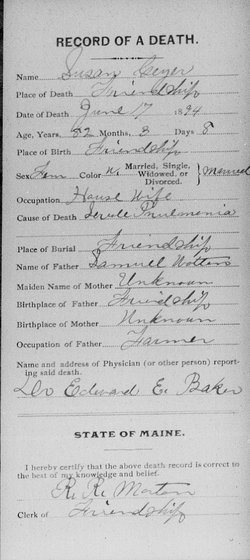 RECORD OF A DEATH.
Name Susan Geyer
Place of Death Friendship
Date of Death June 17 1894
Age, Years, 82 Months, 3 Days 8
Place of Birth Friendship
Sex Fem Color W. Married, Single, Widowed, or Divorced. } Married
Occupation House Wife
Cause of Death Senile Pnulmonia
Place of Burial Friendship
Name of Father Samuel Wotton
Maiden Name of Mother Unknown
Birthplace of Father Friendship
Birthplace of Mother Unknown
Occupation of Father Farmer
Name and address of Physician (or other person) report-
ing said death.
Dr Edward E. Baker
STATE OF MAINE.
I hereby certify that the above death record is correct to
the best of my knowledge and belief.
R. R. Morton
Clerk of Friendship